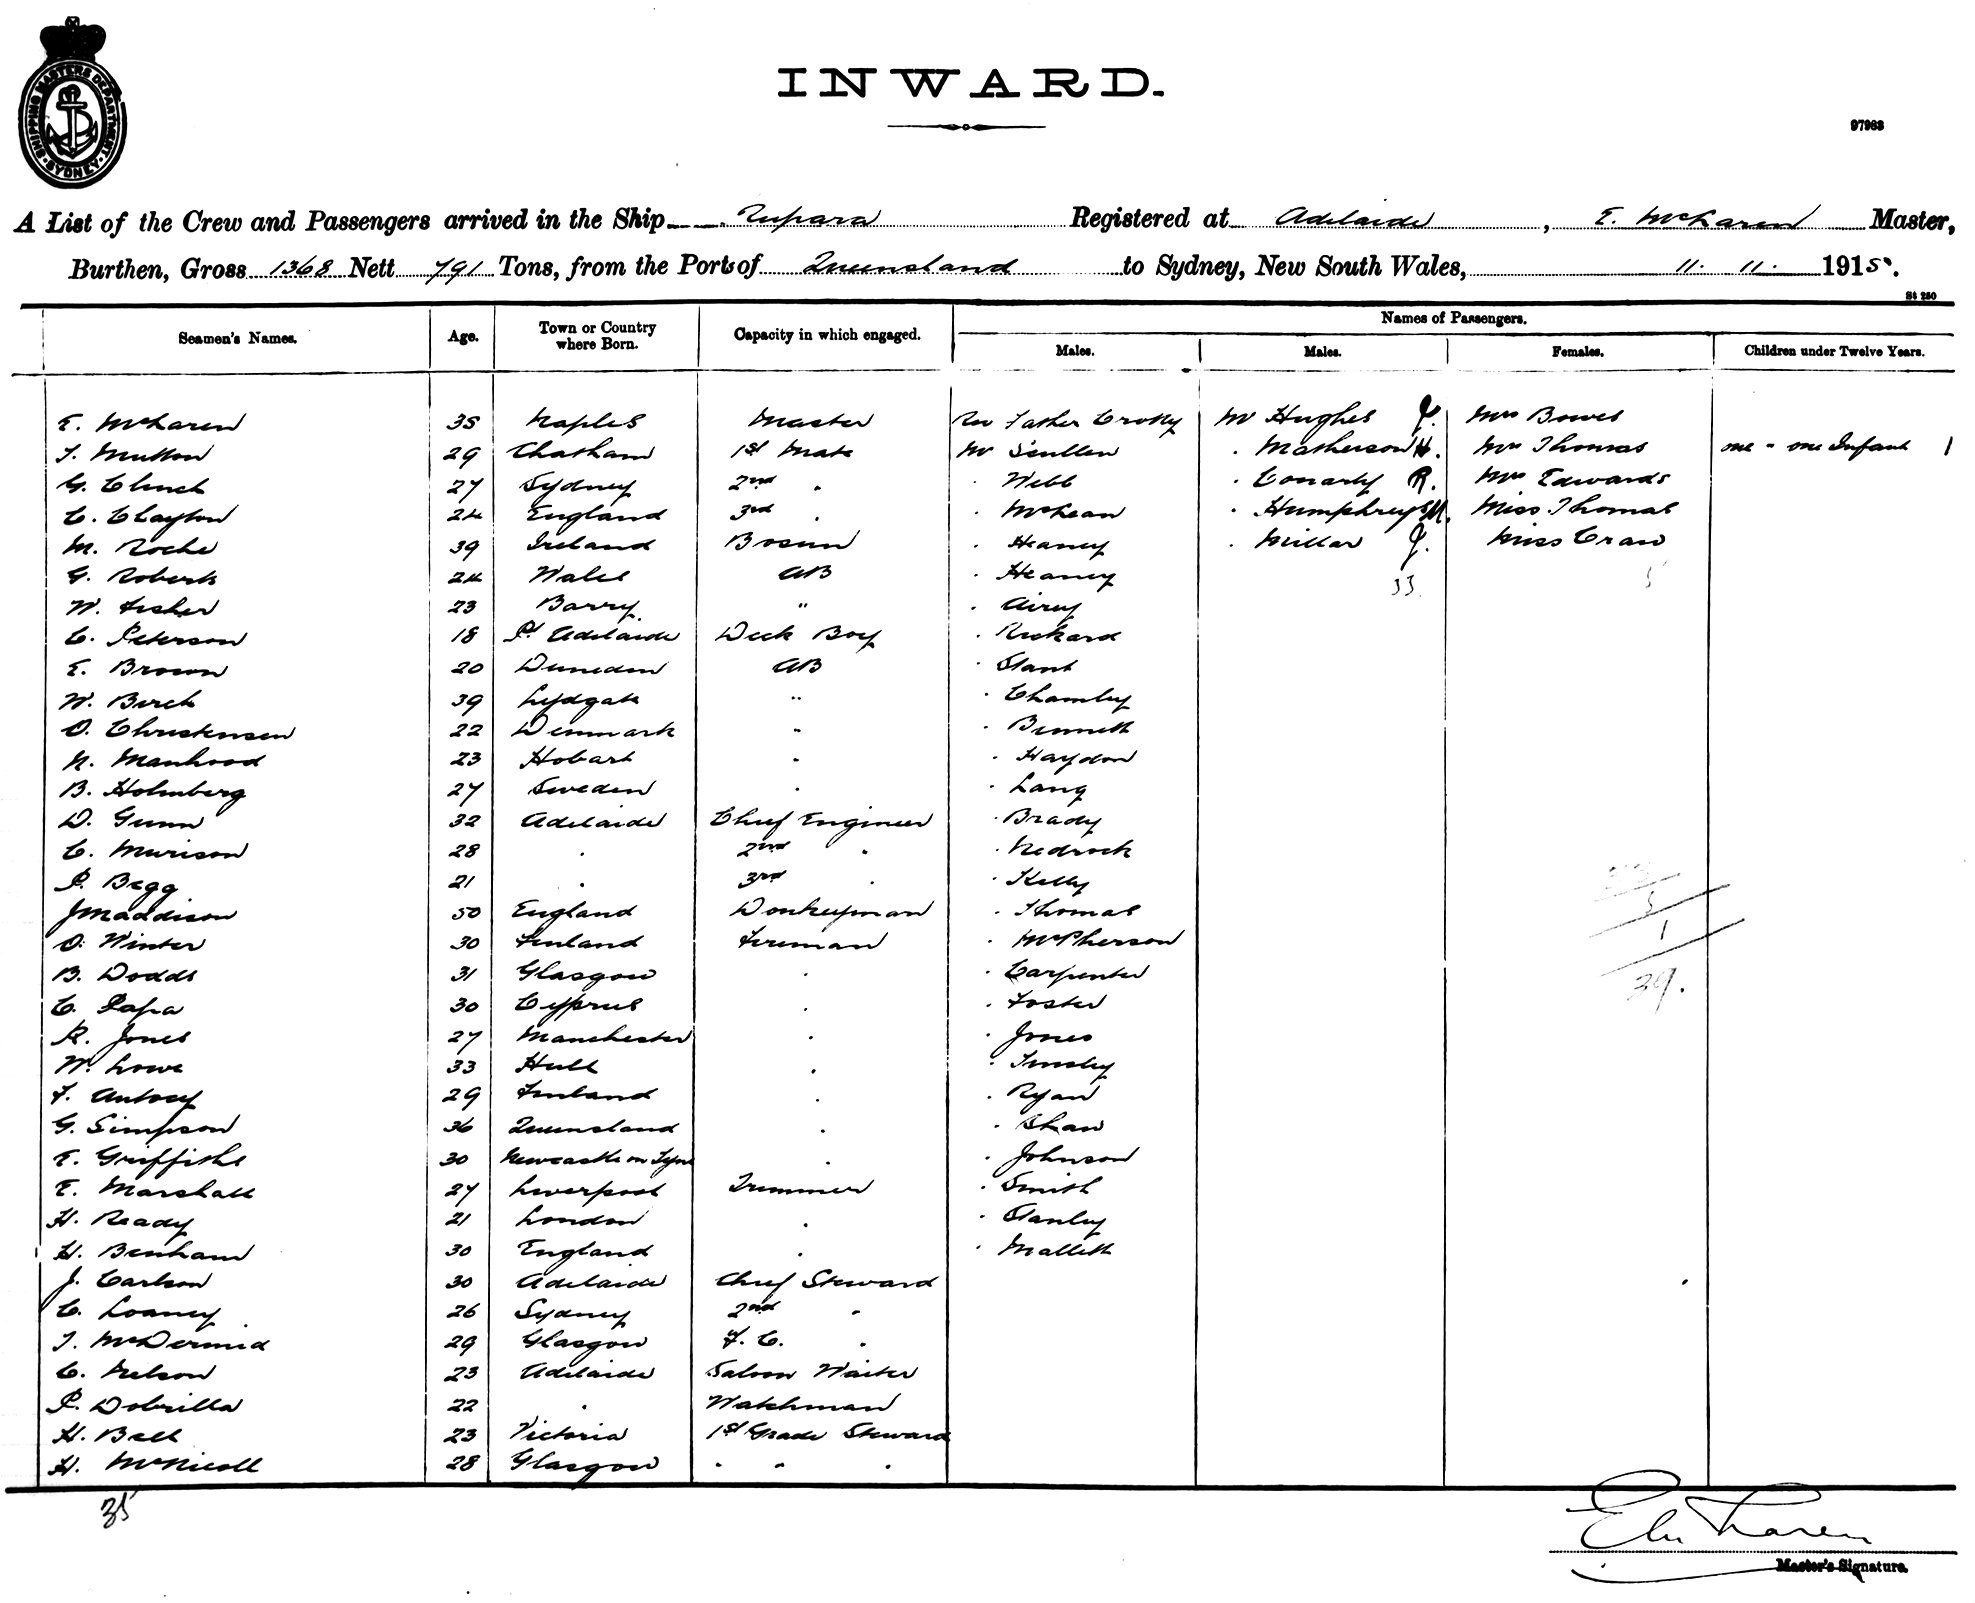 SHIPPING MASTERS DEPARTMENT · SYDNEY ·
INWARD.
97963
A List of the Crew and Passengers arrived in the Ship Rupara Registered at Adelaide, E. McLaren Master,
Burthen, Gross 1368 Nett 791 Tons, from the Port of Queensland to Sydney, New South Wales, 11. 11. 1915.
St 250
Names of Passengers.
Seamen's Names. Age. Town or Country where Born. Capacity in which engaged. Males. Males. Females. Children under Twelve Years.
E. McLaren 35 Naples Master Rev Father Crotty Mr Hughes J. Mrs Bowes
T. Mutton 29 Chatham 1st Mate Mr Scullen . Matherson H. Mrs Thomas one - one Infant 1
G. Clinch 27 Sydney 2nd . . Webb . Conarty R. Mrs Edwards
C. Clayton 24 England 3rd . . McLean . Humphreys M. Miss Thomas
M. Roche 39 Ireland Bosun . Heaney . Millar J. Miss Craw
G. Roberts 24 Wales AB . Heaney 33 5
W. Fisher 23 Barry " . Airey
C. Peterson 18 Pt Adelaide Deck Boy . Rickard
E. Brown 20 Dunedin AB . Stant
W. Birch 39 Lydgate " . Chamley
O. Christensen 22 Denmark " . Bennett
N. Manhood 23 Hobart . . Haydon
B. Holmberg 27 Sweden . . Lang
D. Gunn 32 Adelaide Chief Engineer . Brady
C. Murison 28 . 2nd . . Nedrock
P. Begg 21 . 3rd . . Kelly
J Maddison 50 England Donkeyman . Thomas 5
O. Winter 30 Finland Fireman . McPherson 1
B. Dodds 31 Glasgow . . Carpenter 39.
C. Papa 30 Cyprus . . Foster
R. Jones 27 Manchester . . Jones
W. Lowe 33 Hull . . Tinsley
F. Antocy 29 Finland . . Ryan
G. Simpson 36 Queensland . . Shaw
E. Griffiths 30 Newcastle on Tyne . . Johnson
E. Marshall 27 Liverpool Trimmer . Smith
H. Ready 21 London . . Stanley
H. Benham 30 England . . Mallett
J. Carlson 30 Adelaide Chief Steward
C. Loaney 26 Sydney 2nd "
T. McDermid 29 Glasgow F. C. .
C. Nelson 23 Adelaide Saloon Waiter
P. Dobrilla 22 . Watchman
H. Bell 23 Victoria 1st Grade Steward
H. McNicoll 28 Glasgow . . .
35
E McLaren
Master's Signature.